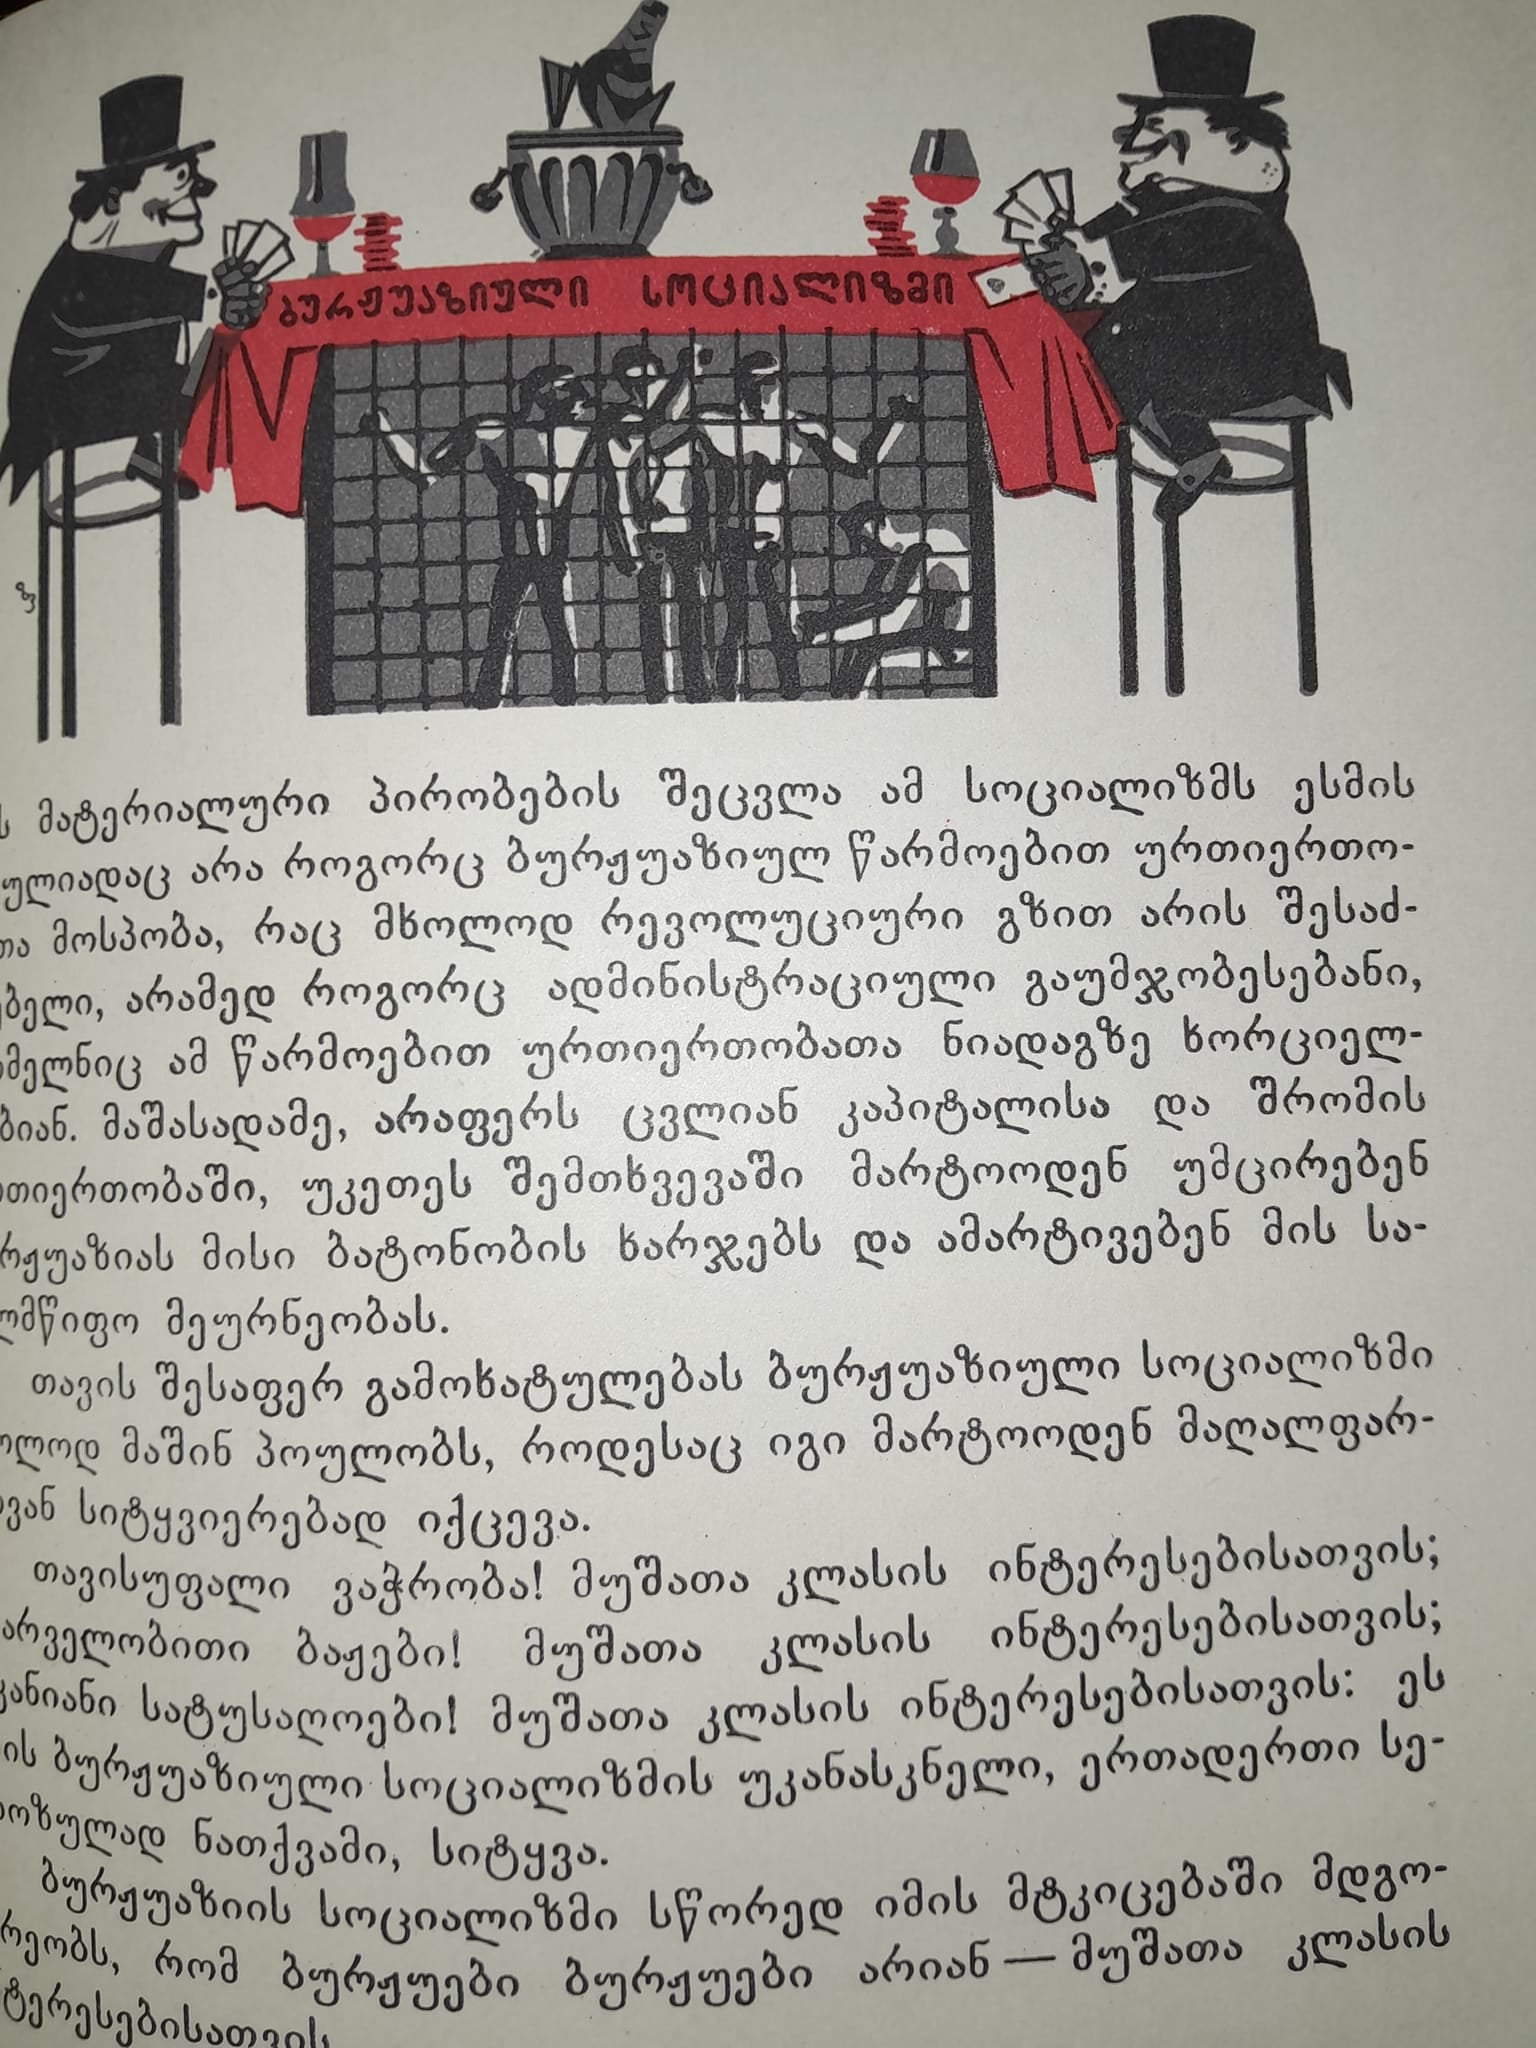 ბურჟუაზიული სოციალიზმი
მატერიალური პირობების შეცვლა ამ სოციალიზმს ესმის
არა როგორც ბურჟუაზიულ წარმოებით ურთიერთო-
მოსპობა, რაც მხოლოდ რევოლუციური გზით არის შესაძ-
არამედ როგორც ადმინისტრაციული გაუმჯობესებანი,
ამ წარმოებით ურთიერთობათა ნიადაგზე ხორციელ-
მაშასადამე, არაფერს ცვლიან კაპიტალისა და შრომის
უკეთეს შემთხვევაში მარტოოდენ უმცირებენ
მისი ბატონობის ხარჯებს და ამარტივებენ მის სა-
მეურნეობას.
თავის შესაფერ გამოხატულებას ბურჟუაზიული სოციალიზმი
მაშინ პოულობს, როდესაც იგი მარტოოდენ მაღალფარ-
სიტყვიერებად იქცევა.
თავისუფალი ვაჭრობა! მუშათა კლასის ინტერესებისათვის;
ბაჟები! მუშათა კლასის ინტერესებისათვის;
სატუსაღოები! მუშათა კლასის ინტერესებისათვის: ეს
ბურჟუაზიული სოციალიზმის უკანასკნელი, ერთადერთი სე-
ნათქვამი, სიტყვა.
ბურჟუაზიის სოციალიზმი სწორედ იმის მტკიცებაში მდგო-
რეობს, რომ ბურჟუები ბურჟუები არიან — მუშათა კლასის